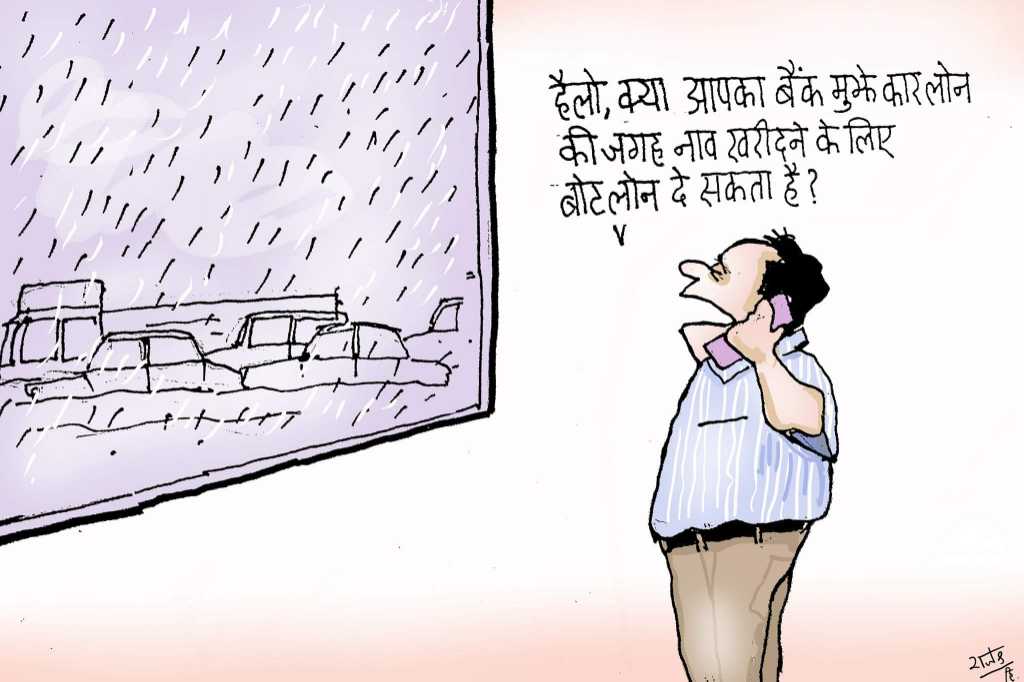 हैलो, क्या आपका बैंक मुझे कार लोन
की जगह नाव खरीदने के लिए
बोट लोन दे सकता है?